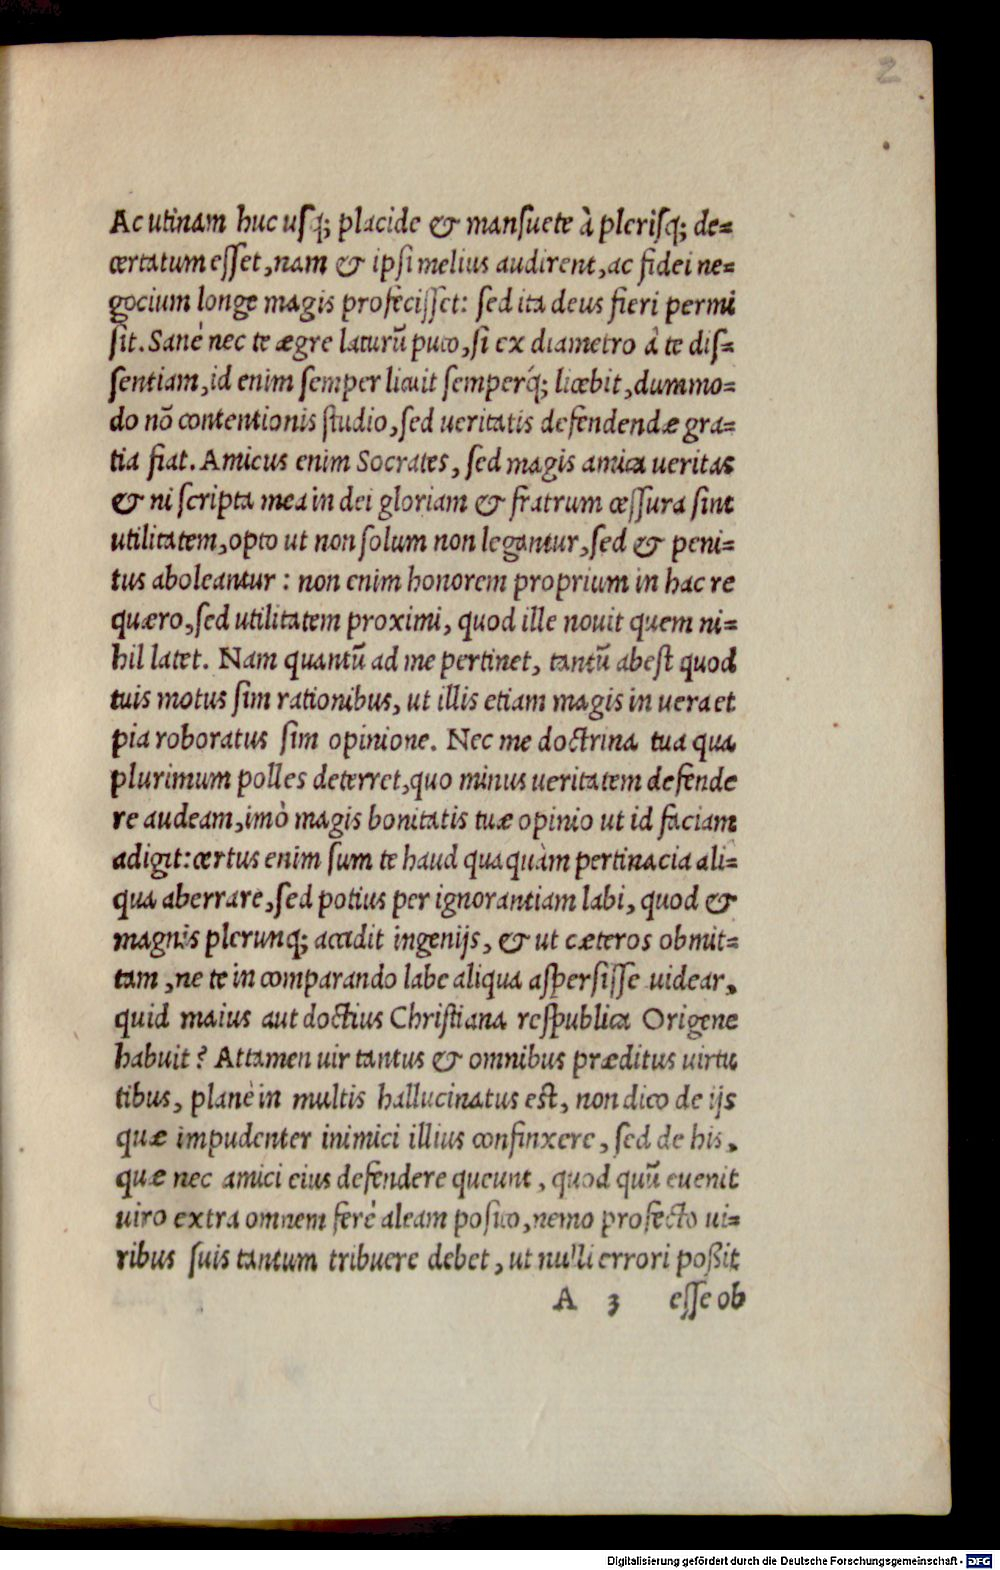 2
Ac utinam huc usq; placide & mansuete à plerisq; de=
certatum esset, nam & ipsi melius audirent, ac fidei ne=
gocium longe magis profecisset: sed ita deus fieri permi
sit. Sanè nec te ægre laturũ puto, si ex diametro à te dis=
sentiam, id enim semper licuit semperq́; licebit, dummo=
do nõ contentionis studio, sed ueritatis defendendæ gra=
tia fiat. Amicus enim Socrates, sed magis amica ueritas
& ni scripta mea in dei gloriam & fratrum cessura sint
utilitatem, opto ut non solum non legantur, sed & peni=
tus aboleantur: non enim honorem proprium in hac re
quæro, sed utilitatem proximi, quod ille nouit quem ni=
hil latet. Nam quantũ ad me pertinet, tantũ abest quod
tuis motus sim rationibus, ut illis etiam magis in uera et
pia roboratus sim opinione. Nec me doctrina tua qua
plurimum polles deterret, quo minus ueritatem defende
re audeam, imò magis bonitatis tuæ opinio ut id faciam
adigit: certus enim sum te haud quaquàm pertinacia ali=
qua aberrare, sed potius per ignorantiam labi, quod &
magnis plerunq; accidit ingenijs, & ut cæteros obmit=
tam, ne te in comparando labe aliqua aspersisse uidear,
quid maius aut doctius Christiana respublica Origene
habuit? Attamen uir tantus & omnibus præditus uirtu
tibus, planè in multis hallucinatus est, non dico de ijs
quæ impudenter inimici illius confinxere, sed de his,
quæ nec amici eius defendere queunt, quod quũ euenit
uiro extra omnem ferè aleam posito, nemo profecto ui=
ribus suis tantum tribuere debet, ut nulli errori poßit
A 3 esse ob
Digitalisierung gefördert durch die Deutsche Forschungsgemeinschaft - DFG